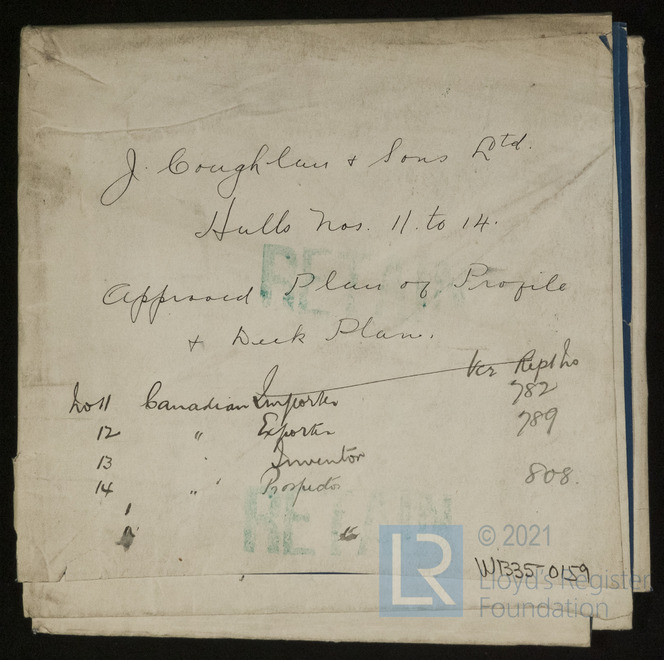 J. Coughlan & Sons Ltd.
Hulls Nos. 11. to 14.
RETAIN
Approved Plan of Profile
& Deck Plan.
Vcr Rept No
No 11 Canadian Importer 782
12 " Exporter 789
13 " Inventor
14 " Prospector 808.
RETAIN
LR
© 2021
Lloyd's Register
Foundation
WB35-0159